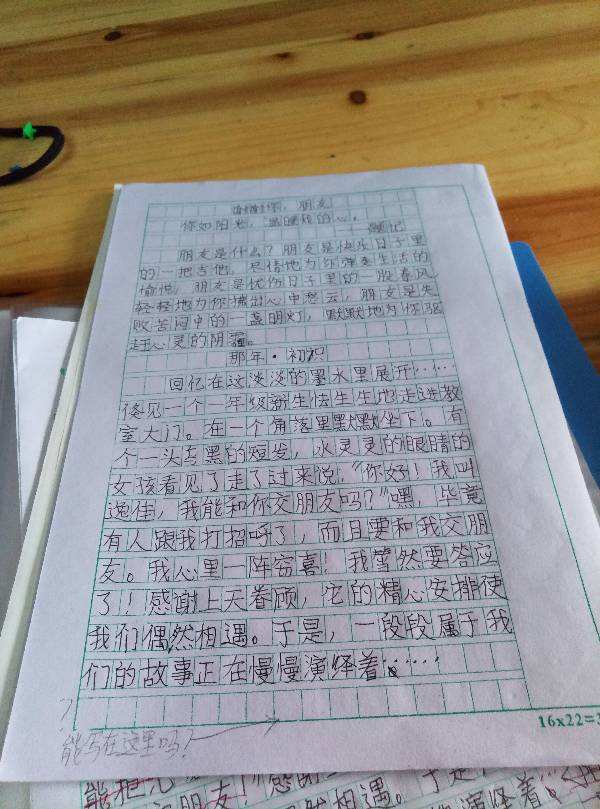 谢谢你，朋友
你如阳光，温暖我的心。
——题记
朋友是什么？朋友是快乐日子里
的一把吉他，尽情地为你弹奏生活的
愉悦，朋友是忧伤日子里的一股春风
轻轻地为你拂出心中愁云，朋友是失
败苦闷中的一盏明灯，默默地为你驱
赶心灵的阴霾。
那年·初识
回忆在这淡淡的墨水里展开……
倏见一个一年级新生怯生生地走进教
室大门。在一个角落里默默坐下。有
个一头乌黑的短发，水灵灵的眼睛的
女孩看见了走了过来说："你好！我叫
逸佳，我能和你交朋友吗？"嘿，毕竟
有人跟我打招呼了，而且要和我交朋
友。我心里一阵窃喜！我当然要答应
了！感谢上天眷顾，它的精心安排使
我们偶然相遇。于是，一段段属于我
们的故事正在慢慢演绎着……
？
能写在这里吗？
16×22=3
演绎着。